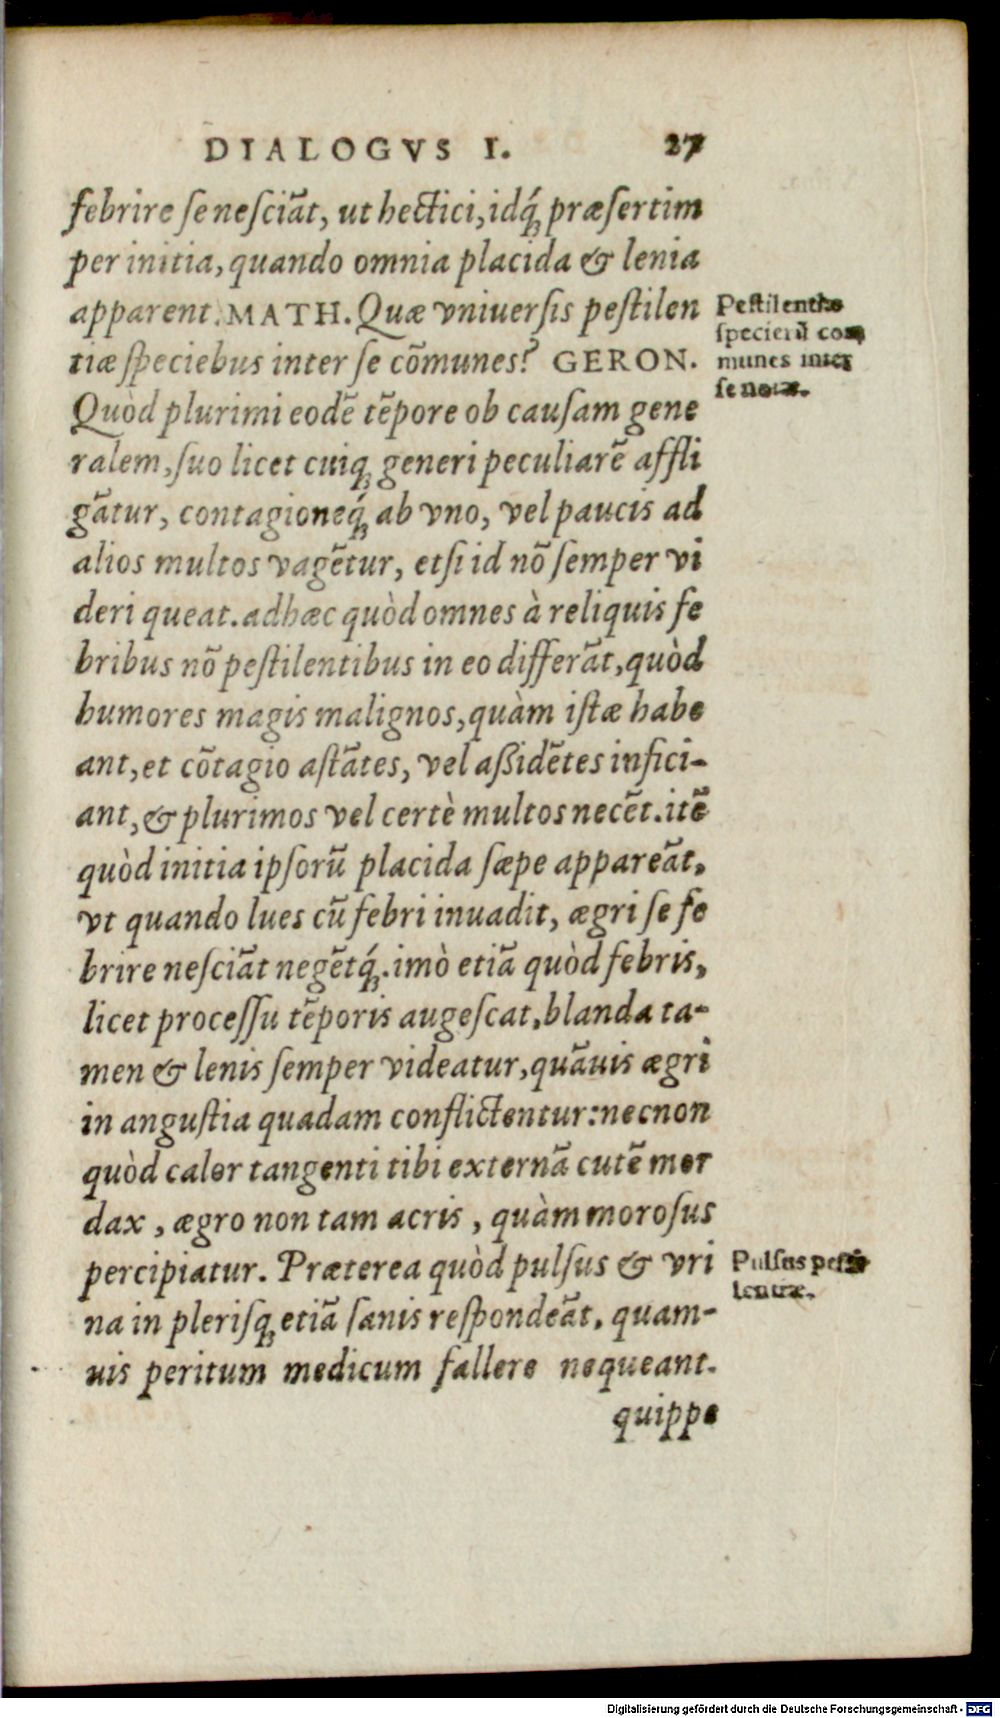 DIALOGVS I. 27
febrire se nesciāt, ut hectici, idq́ꝫ præsertim
per initia, quando omnia placida & lenia
apparent. MATH. Quæ vniuersis pestilen
tiæ speciebus inter se cōmunes? GERON.
Quòd plurimi eodē tēpore ob causam gene
ralem, suo licet cuiqꝫ generi peculiarē affli
gātur, contagioneq́ꝫ ab vno, vel paucis ad
alios multos vagētur, etsi id nō semper vi
deri queat. adhæc quòd omnes à reliquis fe
bribus nō pestilentibus in eo differāt, quòd
humores magis malignos, quàm istæ habe
ant, et cōtagio astātes, vel aßidētes infici-
ant, & plurimos vel certè multos necēt. itē
quòd initia ipsorū placida sæpe appareāt,
vt quando lues cū febri inuadit, ægri se fe
brire nesciāt negētq́ꝫ. imò etiā quòd febris,
licet processu tēporis augescat, blanda ta-
men & lenis semper videatur, quāuis ægri
in angustia quadam conflictentur: necnon
quòd calor tangenti tibi externā cutē mor
dax, ægro non tam acris, quàm morosus
percipiatur. Præterea quòd pulsus & vri
na in plerisqꝫ etiā sanis respondeāt, quam-
uis peritum medicum fallere nequeant.
quippe
Pestilentiæ
specierū com
munes inter
se notæ.
Pulsus pesti
lentiæ.
Digitalisierung gefördert durch die Deutsche Forschungsgemeinschaft - DFG